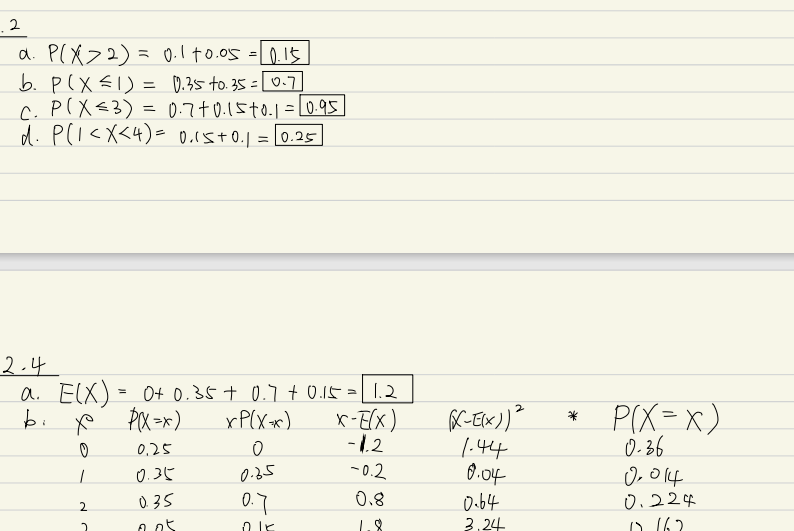 .2
a. P(X>2) = 0.1+0.05 = 0.15
b. P(X≤1) = 0.35+0.35 = 0.7
c. P(X≤3) = 0.7+0.15+0.1 = 0.95
d. P(1<X<4) = 0.15+0.1 = 0.25
2.4
a. E(X) = 0+ 0.35 + 0.7 + 0.15 = 1.2
b. x P(X=x) xP(X=x) x-E(X) (X-E(x))² * P(X=x)
0 0.25 0 -1.2 1.44 0.36
1 0.35 0.35 -0.2 0.04 0.014
2 0.35 0.7 0.8 0.64 0.224
3 0.05 0.15 1.8 3.24 0.162